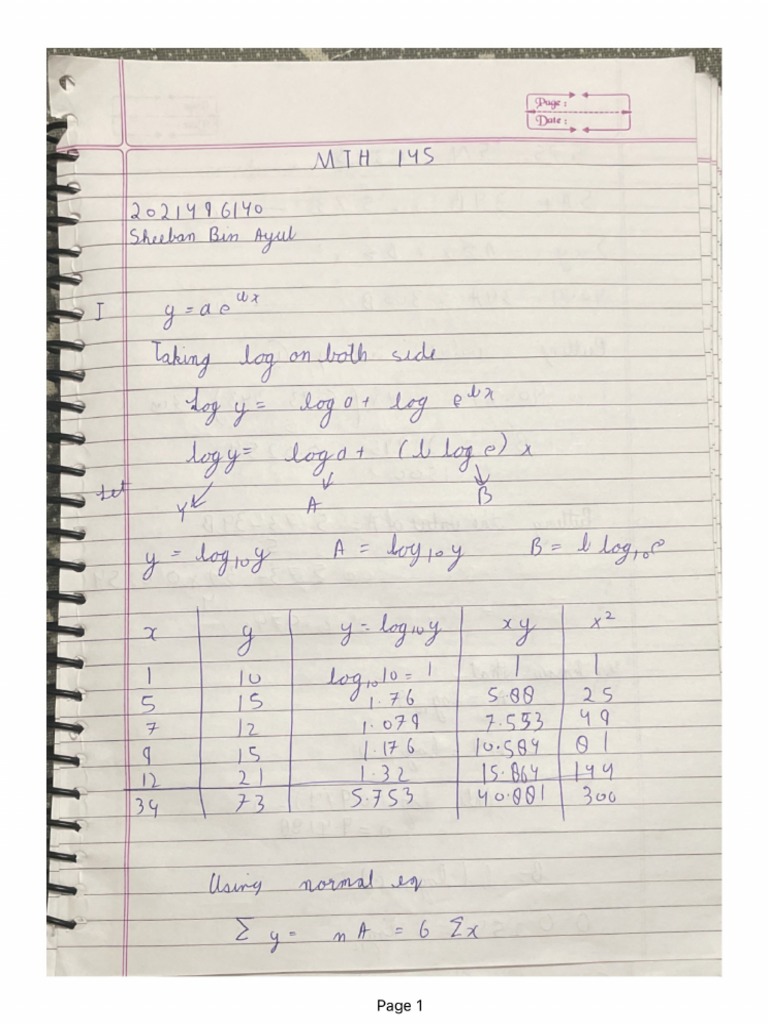 Page :
Date :
MTH 145
2021496140
Sheeban Bin Ayul
I y = a e^bx
Taking log on both side
Log y = log a + log e^bx
log y = log a + (b log e) x
Let
Y A B
y = log₁₀y A = log₁₀y B = b log₁₀e
x y y = log₁₀y xy x²
1 10 log₁₀10 = 1 1 1
5 15 1.76 5.88 25
7 12 1.079 7.553 49
9 15 1.176 10.584 81
12 21 1.32 15.864 144
34 73 5.753 40.881 300
Using normal eq
Σ y = n A = 6 Σx
Page 1